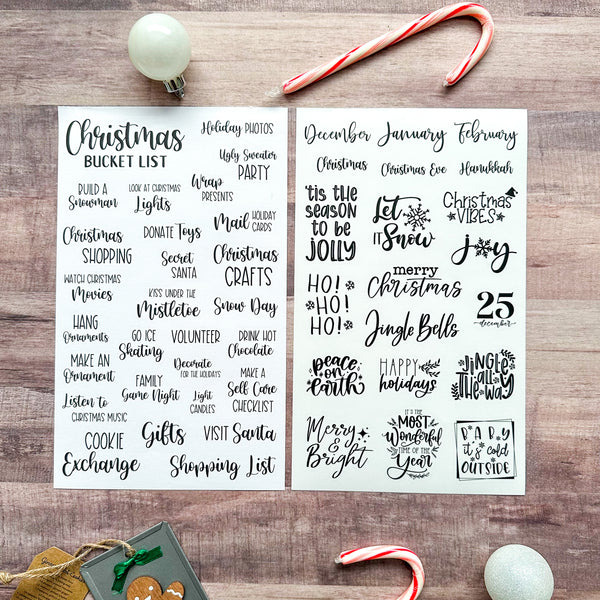 Christmas
BUCKET LIST
Holiday PHOTOS
Ugly Sweater
PARTY
BUILD A
Snowman
LOOK AT CHRISTMAS
Lights
Wrap
PRESENTS
Christmas
SHOPPING
DONATE Toys
Mail HOLIDAY
CARDS
Secret
SANTA
Christmas
CRAFTS
WATCH CHRISTMAS
Movies
KISS UNDER THE
Mistletoe
Snow Day
HANG
Ornaments
GO ICE
Skating
VOLUNTEER
DRINK HOT
Chocolate
MAKE AN
Ornament
Decorate
FOR THE HOLIDAYS
MAKE A
Self Care
CHECKLIST
FAMILY
Game Night
Light
CANDLES
Listen to
CHRISTMAS MUSIC
COOKIE
Exchange
Gifts
VISIT Santa
Shopping List
December January February
Christmas Christmas Eve Hanukkah
'tis the
season
to be
jolly
Let
it Snow
Christmas
VIBES
joy
HO!
HO!
HO!
merry
Christmas
Jingle Bells
25
december
peace
on
earth
HAPPY
holidays
JINGLE
all
THE WAY
Merry
& Bright
IT'S THE
MOST
Wonderful
TIME OF THE
YEAR
BABY
it's cold
OUTSIDE